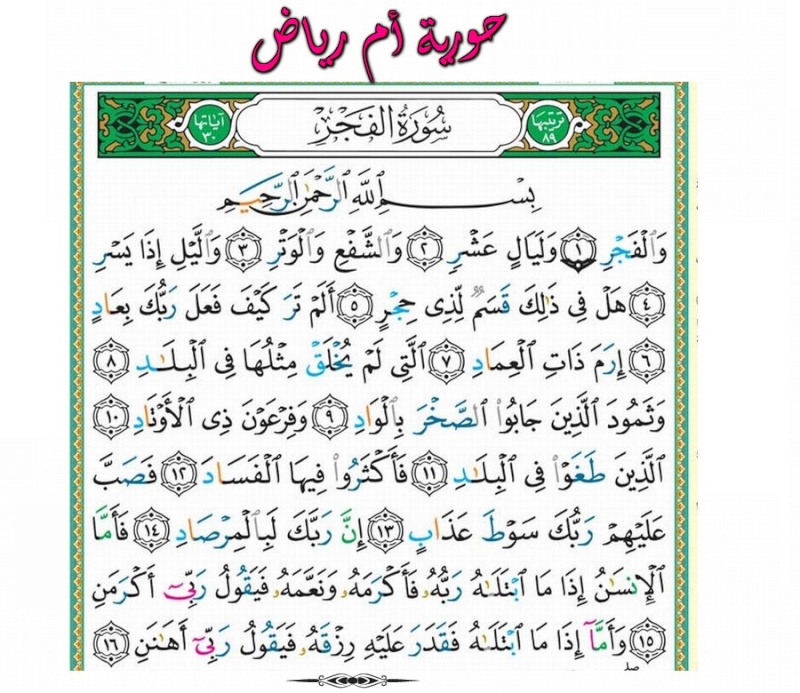 حورية أم رياض
ترتيبها ٨٩ سُورَةُ الفَجْرِ آياتها ٣٠
بِسْمِ ٱللَّهِ ٱلرَّحْمَٰنِ ٱلرَّحِيمِ
وَٱلْفَجْرِ ١ وَلَيَالٍ عَشْرٖ ٢ وَٱلشَّفْعِ وَٱلْوَتْرِ ٣ وَٱلَّيْلِ إِذَا يَسْرِ
٤ هَلْ فِى ذَٰلِكَ قَسَمٞ لِّذِى حِجْرٍ ٥ أَلَمْ تَرَ كَيْفَ فَعَلَ رَبُّكَ بِعَادٍ
٦ إِرَمَ ذَاتِ ٱلْعِمَادِ ٧ ٱلَّتِى لَمْ يُخْلَقْ مِثْلُهَا فِى ٱلْبِلَٰدِ ٨
وَثَمُودَ ٱلَّذِينَ جَابُوا۟ ٱلصَّخْرَ بِٱلْوَادِ ٩ وَفِرْعَوْنَ ذِى ٱلْأَوْتَادِ ١٠
ٱلَّذِينَ طَغَوْا۟ فِى ٱلْبِلَٰدِ ١١ فَأَكْثَرُوا۟ فِيهَا ٱلْفَسَادَ ١٢ فَصَبَّ
عَلَيْهِمْ رَبُّكَ سَوْطَ عَذَابٍ ١٣ إِنَّ رَبَّكَ لَبِٱلْمِرْصَادِ ١٤ فَأَمَّا
ٱلْإِنسَٰنُ إِذَا مَا ٱبْتَلَىٰهُ رَبُّهُۥ فَأَكْرَمَهُۥ وَنَعَّمَهُۥ فَيَقُولُ رَبِّىٓ أَكْرَمَنِ
١٥ وَأَمَّآ إِذَا مَا ٱبْتَلَىٰهُ فَقَدَرَ عَلَيْهِ رِزْقَهُۥ فَيَقُولُ رَبِّىٓ أَهَٰنَنِ ١٦